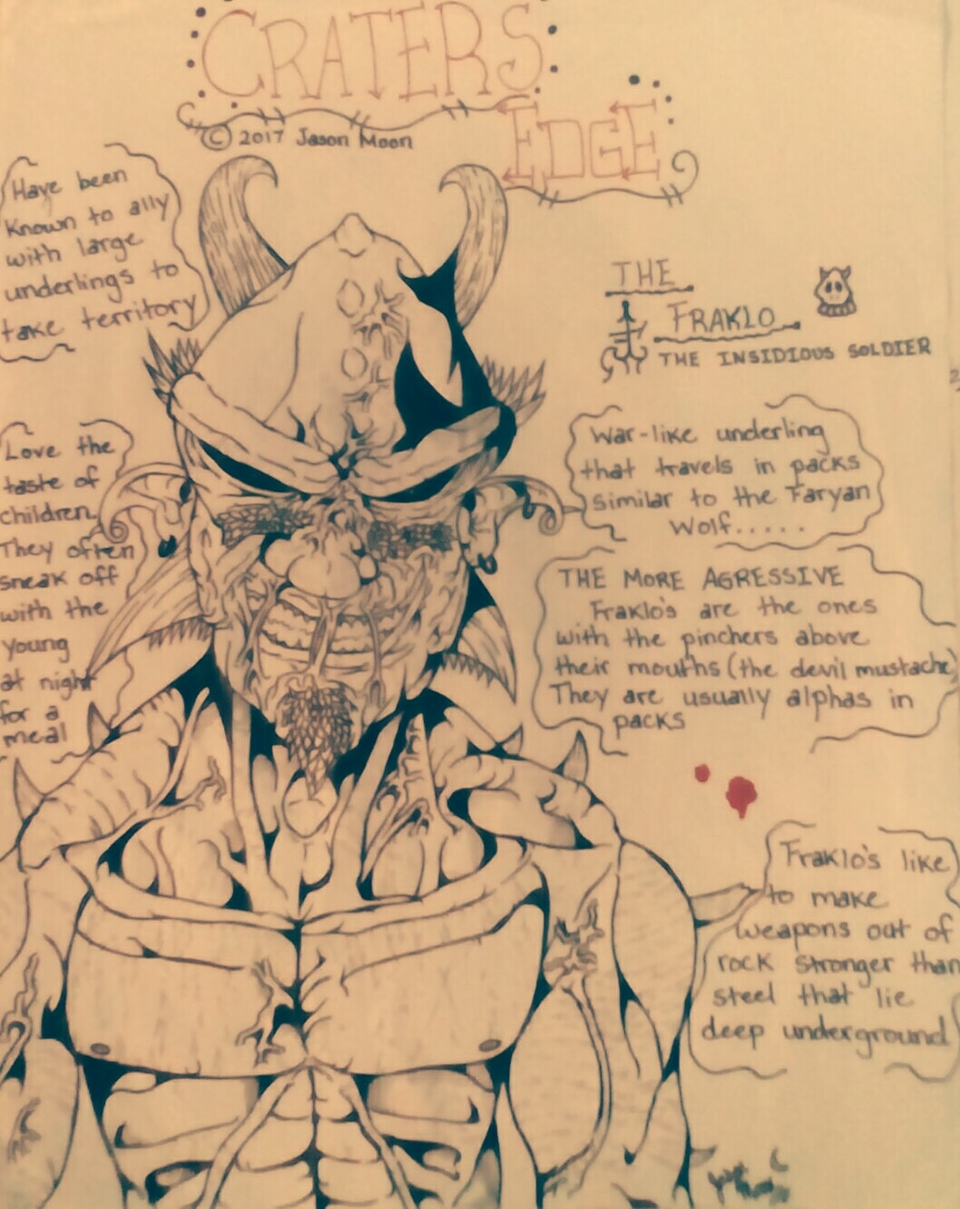 CRATERS
EDGE
© 2017 Jason Moon
Have been
Known to ally
with large
underlings to
take territory
THE
FRAKLO
THE INSIDIOUS SOLDIER
Love the
taste of
children.
They often
sneak off
with the
young
at night
for a
meal
War-like underling
that travels in packs
similar to the Faryan
Wolf.....
THE MORE AGRESSIVE
Fraklo's are the ones
with the pinchers above
their mouths (the devil mustache)
They are usually alphas in
packs
Fraklo's like
to make
weapons out of
rock stronger than
steel that lie
deep underground